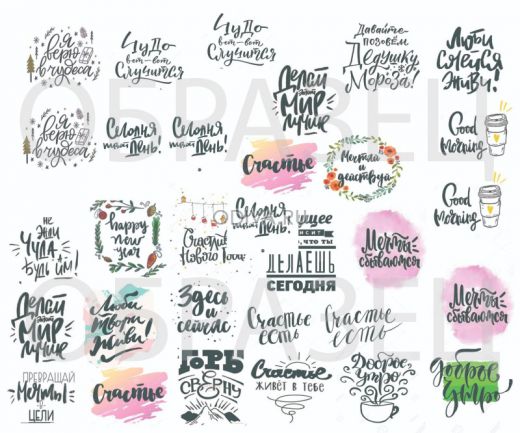 я
верю
в чудеса
Чудо
вот-вот
случится
Чудо
вот-вот
случится
Давайте
позовём
Дедушку
Мороза!
Люби
смейся
живи!
Делай
этот
мир
лучше
я
верю
в чудеса
Сегодня
твой
день!
Сегодня
твой
день!
Счастье
Мечтай
и
действуй
Good
Morning
ОБРАЗЕЦ
Good
Morning
не
жди
чуда
будь им!
happy
new
year
Счастья
в
Нового Года
Сегодня
твой
день!
что ты
делаешь
сегодня
Мечты
сбываются
Мечты
сбываются
Делай
этот
мир
лучше
Люби
твори
живи!
Здесь
и
сейчас
Счастье
есть
Счастье
есть
превращай
мечты
в
цели
Счастье
горы
сверну
Счастье
живёт в тебе
Доброе
утро
доброе
утро